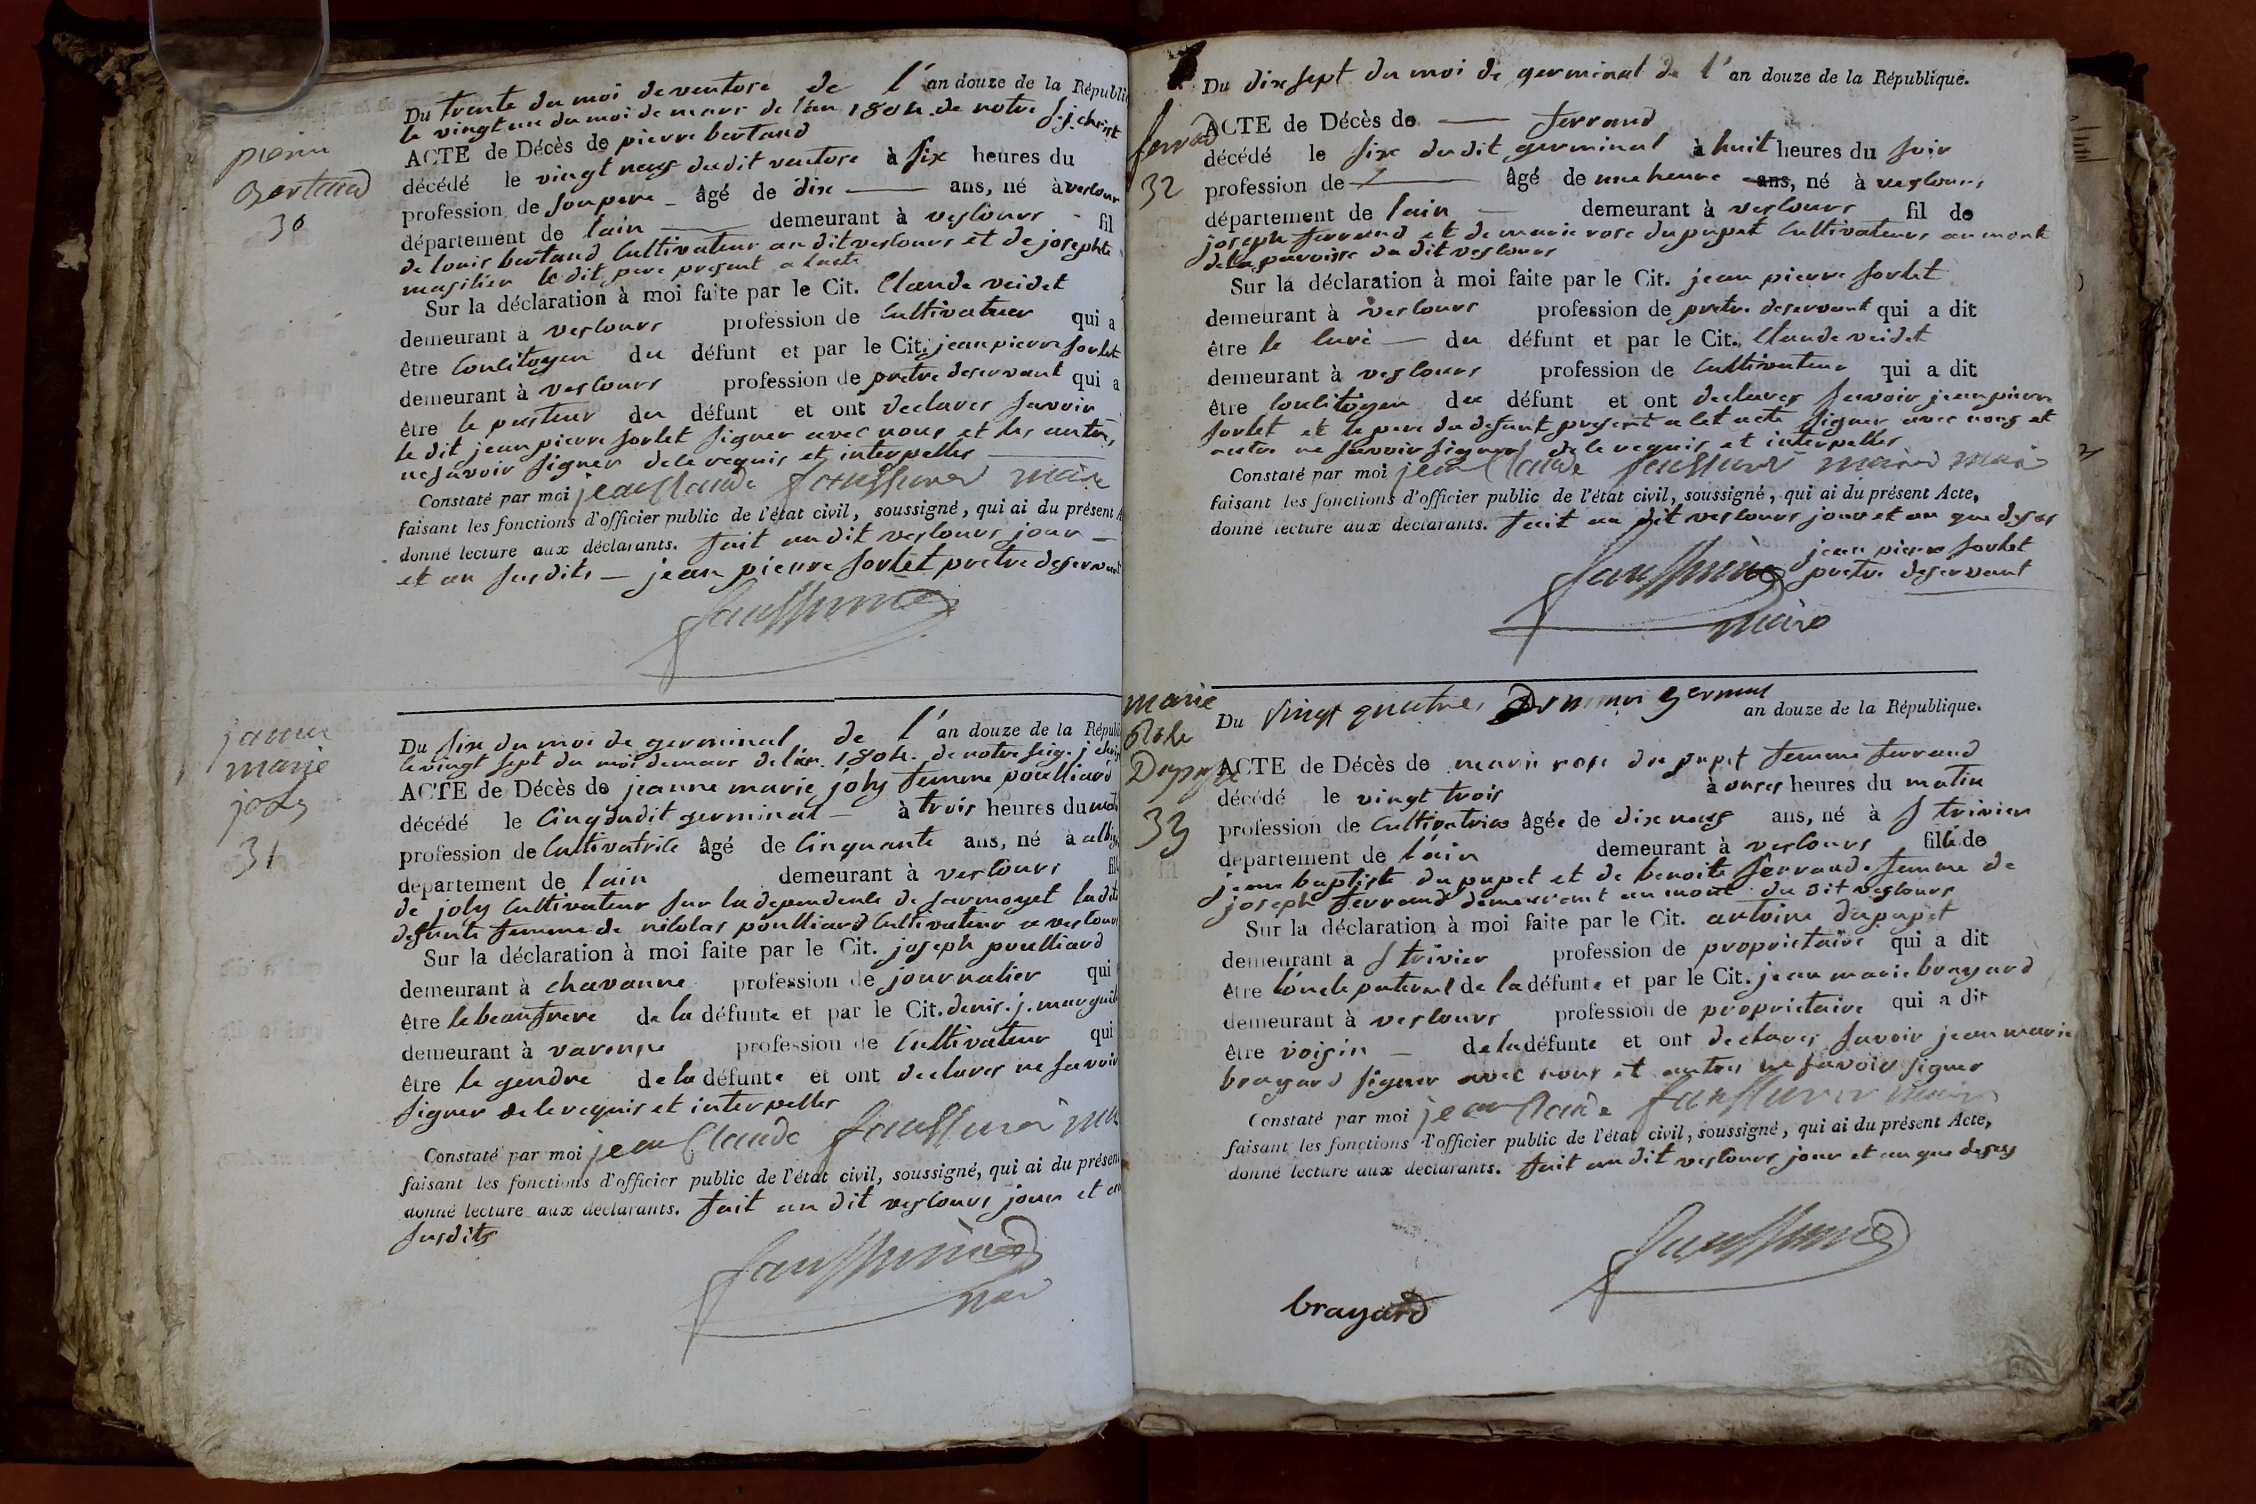 pierre
Bertaud
30
Du trente du moi de ventose de l'an douze de la Républi
le vingt un du moi de mars de l'an 1804. de notre S. j. christ
ACTE de Décès de pierre bertaud
décédé le vingt neuf dudit ventose à six heures du
profession de son pere âgé de dix ans, né à vescours
département de lain demeurant à vescours fil
de louis bertaud Cultivateur au dit vescours et de josephte
le dit pere present a lacte
Sur la déclaration à moi faite par le Cit. Claude veidet
demeurant à vescours profession de Cultivateur qui a
être Concitoyen du défunt et par le Cit. jean pierre sorlet
demeurant à vescours profession de pretre deservant qui a
être le pasteur du défunt et ont declares savoir
le dit jean pierre sorlet signer avec nous et les autres
ne savoir signer de le requis et interpelles
Constaté par moi jean Claude maire
faisant les fonctions d'officier public de l'état civil, soussigné, qui ai du présent A
donné lecture aux déclarants. fait au dit vescours jour
et an susdits — jean pierre sorlet pretre deservant
janne
marie
joly
31
Du six du moi de germinal de l'an douze de la Républi
le vingt sept du moi de mars de l'an 1804. de notre seig. j chris
ACTE de Décès de jeanne marie joly femme poulliard
décédé le Cinq dudit germinal à trois heures du mati
profession de Cultivatrice âgé de Cinquante ans, né à
département de lain demeurant à vescours fill
de joly Cultivateur sur la dependente de sermoyet ladite
defunte femme de nicolas poulliard Cultivateur a vescours
Sur la déclaration à moi faite par le Cit. joseph poulliard
demeurant à chavanne profession de journalier qui
être le beaufrere de la défunte et par le Cit. denis. j. marguil
demeurant à varenne profession de Cultivateur qui
être le gendre de la défunte et ont declares ne savoir
signer de le requis et interpelles
Constaté par moi jean Claude
faisant les fonctions d'officier public de l'état civil, soussigné, qui ai du présent
donné lecture aux déclarants. fait au dit vescours jour et an
susdits
ferrad
32
Du dix sept du moi de germinal de l'an douze de la République.
ACTE de Décès de — ferrand
décédé le six dudit germinal à huit heures du soir
profession de — âgé de une heure ans, né à vescours
département de lain demeurant à vescours fil de
joseph ferrand et de marie rose dupupet Cultivateurs au mont
de la paroisse du dit vescours
Sur la déclaration à moi faite par le Cit. jean pierre sorlet
demeurant à vescours profession de pretre deservant qui a dit
être le Curè du défunt et par le Cit. Claude veidet
demeurant à vescours profession de Cultivateur qui a dit
être Concitoyen du défunt et ont declares savoir jean pierre
sorlet et le pere du defunt present a cet acte signer avec nous et
autre ne savoir signer de le requis et interpelles
Constaté par moi jean Claude maire
faisant les fonctions d'officier public de l'état civil, soussigné, qui ai du présent Acte,
donné lecture aux déclarants. fait au dit vescours jour et an que desus
jean pierre sorlet
pretre deservant
maire
marie
Rose
Dupupet
33
Du vingt quatre Du moi germinal an douze de la République.
ACTE de Décès de marie rose dupupet femme ferrand
décédé le vingt trois à onses heures du matin
profession de Cultivatrice âgée de dix neuf ans, né à S trivier
département de lain demeurant à vescours fille de
jean baptiste dupupet et de benoite ferrand femme de
joseph ferrand demeurant au mont du dit vescours
Sur la déclaration à moi faite par le Cit. antoine dupupet
demeurant à S trivier profession de proprietaire qui a dit
être l'oncle paternel de la défunte et par le Cit. jean marie brayard
demeurant à vescours profession de proprietaire qui a dit
être voisin de la défunte et ont declares savoir jean marie
brayard signer avec nous et autres ne savoir signer
Constaté par moi jean Claude maire
faisant les fonctions d'officier public de l'état civil, soussigné, qui ai du présent Acte,
donné lecture aux déclarants. fait au dit vescours jour et an que desus
brayard